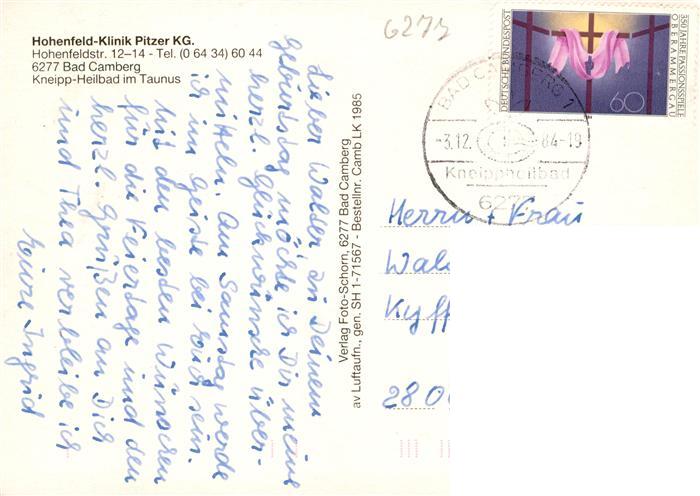 Hohenfeld-Klinik Pitzer KG.
Hohenfeldstr. 12–14 - Tel. (0 64 34) 60 44
6277 Bad Camberg
Kneipp-Heilbad im Taunus
6277
DEUTSCHE BUNDESPOST
350 JAHRE PASSIONSSPIELE
OBERAMMERGAU
60
BAD CAMBERG 1
-3.12. 84-19
Kneippheilbad
627
Lieber Walter zu Deinem
Geburtstag möchte ich Dir meine
herzl. Glückwünsche über-
mitteln. Am Samstag werde
ich im Geiste bei Euch sein.
Mit den besten Wünschen
für die Feiertage und den
herzl. Grüßen an Dich
und Thea verbleibe ich
Eure Ingrid
Verlag Foto-Schorn, 6277 Bad Camberg
av Luftaufn., gen. SH 1-71567 - Bestellnr. Camb LK 1985
Herrn + Frau
Wal
Kyff
28 0